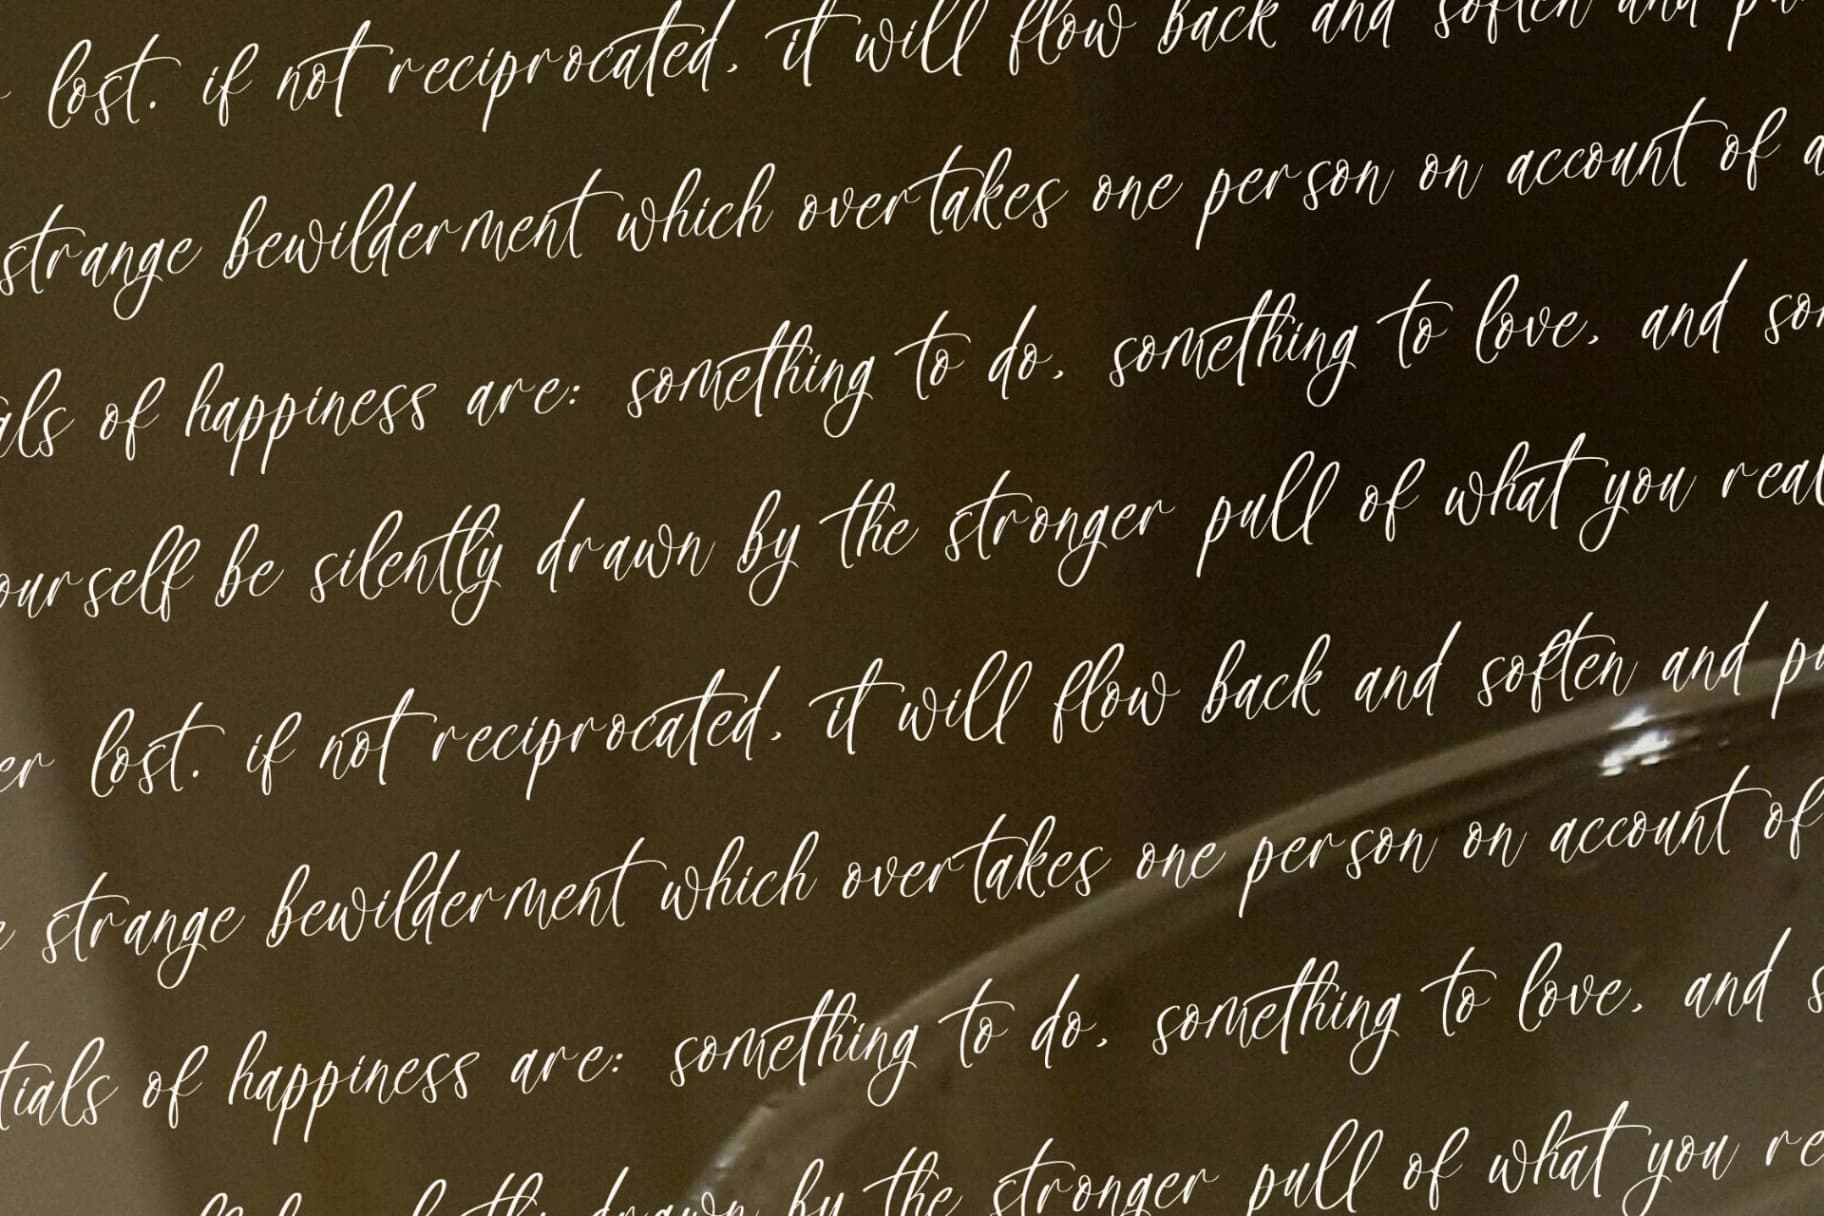 lost. if not reciprocated, it will flow back and soften and
strange bewilderment which overtakes one person on account of a
als of happiness are: something to do, something to love, and so
ourself be silently drawn by the stronger pull of what you real
er lost. if not reciprocated, it will flow back and soften and pu
strange bewilderment which overtakes one person on account of
tials of happiness are: something to do, something to love, and s
drawn by the stronger pull of what you re